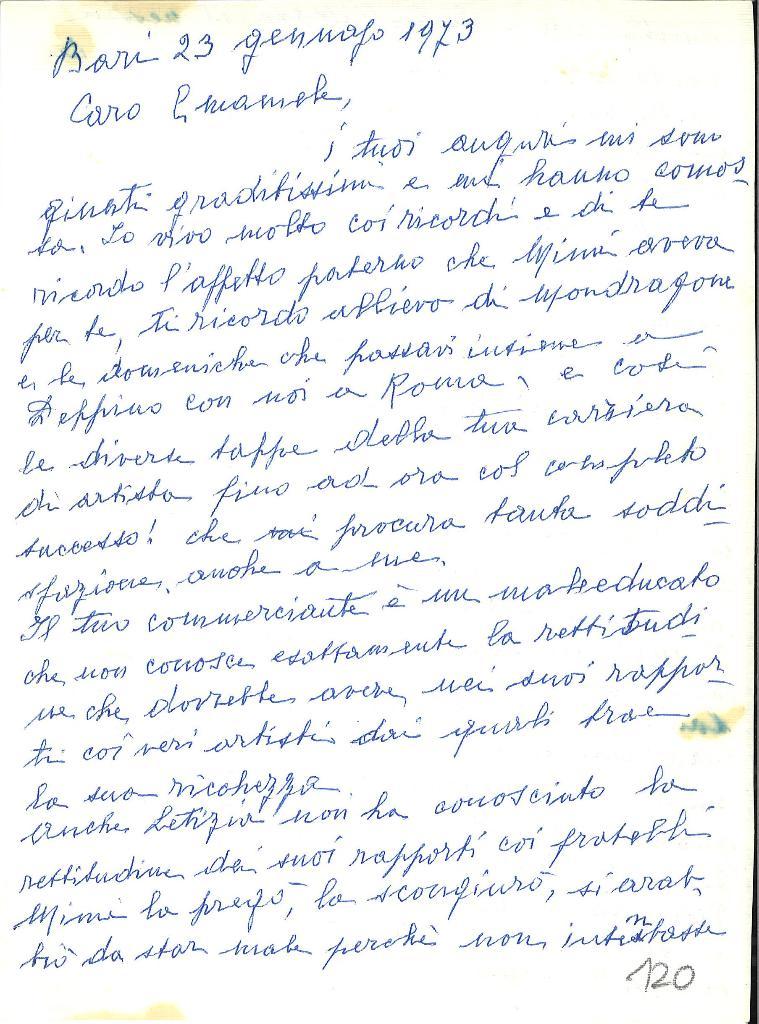 Bari 23 gennajo 1973
Caro Emanuele,
i tuoi auguri mi sono
giunti graditissimi e mi hanno comos-
sa. Io vivo molto coi ricordi e di te
ricordo l'affetto paterno che Mimì aveva
per te, ti ricordo allievo di Mondragone
e le domeniche che passavi insieme a
Peppino con noi a Roma, e così
le diverse tappe della tua carriera
di artista fino ad ora col completo
successo! che mi procura tanta soddi-
sfazione, anche a me.
Il tuo commerciante è un maleducato
che non conosce esattamente la rettitudi
ne che dovrebbe avere, nei suoi rappor-
ti coi veri artisti dai quali trae
la sua ricchezza.
Anche Letizia non ha conosciuto la
rettitudine dei suoi rapporti coi fratelli
Mimì la pregò, la scongiurò, si arab-
biò da star male perchè non
120